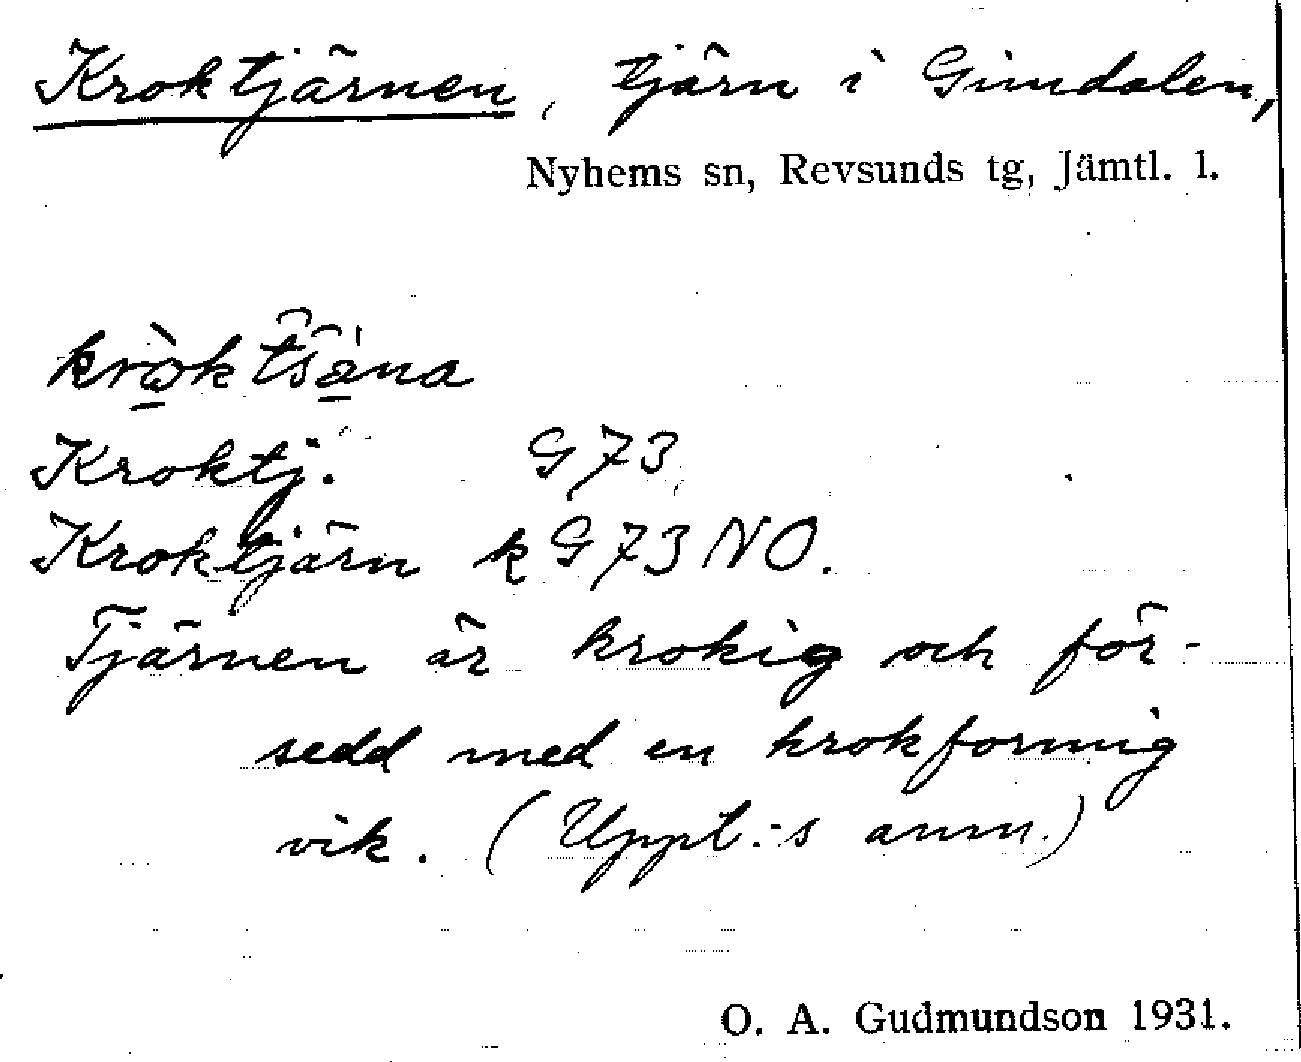 Kroktjärnen, tjärn i Gimdalen,
Nyhems sn, Revsunds tg, Jämtl. l.
Kroktj. G 73
Kroktjärn k G 73 NO.
Tjärnen är krokig och för-
sedd med en krokformig
vik. (Uppt.:s anm.)
O. A. Gudmundson 1931.